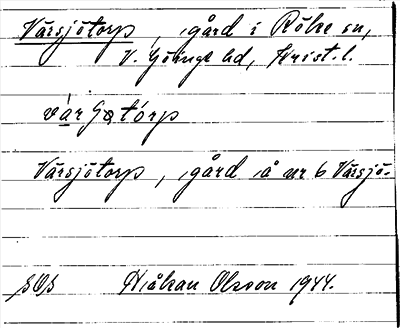 Vårsjötorp, gård i Röke sn,
V. Göinge hd, Krist. l.
Vårsjötorp, gård å nr 6 Vårsjö.
Håkan Olsson 1944.